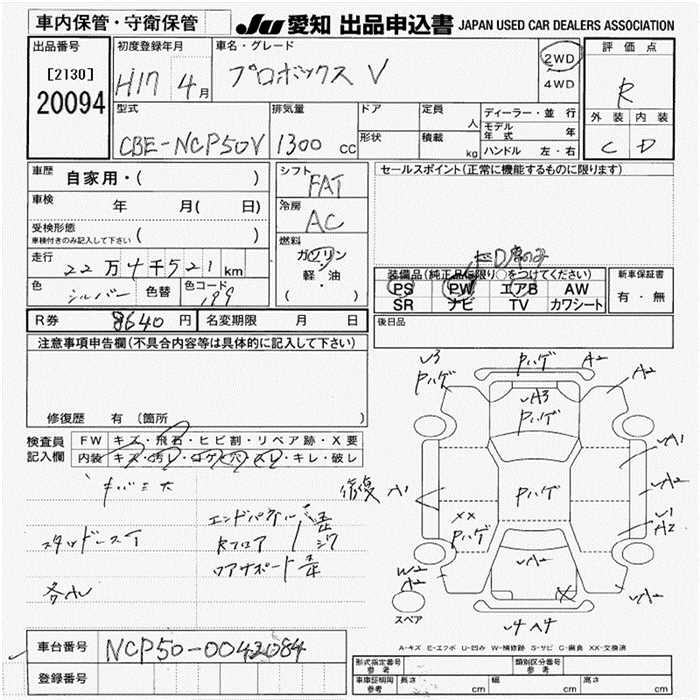 車内保管・守衛保管
JU 愛知 出品申込書 JAPAN USED CAR DEALERS ASSOCIATION
出品番号
[2130]
20094
初度登録年月
H17 4月
車名・グレード
プロボックス V
2WD
4WD
評価点
R
外装 内装
C D
型式
CBE-NCP50V
排気量
1300 cc
ドア
形状
定員
人
積載
kg
ディーラー・並行
モデル年式 年
ハンドル 左・右
車歴
自家用・( )
車検
年 月( 日)
受検形態
車検付きのみ記入して下さい ( )
走行
22万4千521km
色
シルバー 色替
色コード
199
シフト
FAT
冷房
AC
燃料
ガソリン
・
軽・油
( )
セールスポイント(正常に機能するものに限ります)
装備品(純正品に限り○をつけてください)
PS PW エアB AW
SR ナビ TV カワシート
新車保証書
有・無
R券 8640円
名変期限 月 日
後日品
注意事項申告欄(不具合内容等は具体的に記入して下さい)
修復歴 有 (箇所
検査員
記入欄
FW キズ・飛石・ヒビ割・リペア跡・X要
内装 キズ・汚レ・コゲ・穴・スレ・キレ・破レ
エンドパネル
Rフロア
修復
V3
Pハゲ
Pハゲ
A2
A2
A3
Pハゲ
A1
Pハゲ
XX
Pハゲ
A2
W2
A2
X
スペア
A-キズ E-エクボ U-凹み W-補修跡 S-サビ C-腐食 XX-交換済
車台番号
NCP50-0042084
登録番号
形式指定番号
参考
類別区分番号
参考
車庫証明用
参考
長さ cm
幅 cm
高さ cm